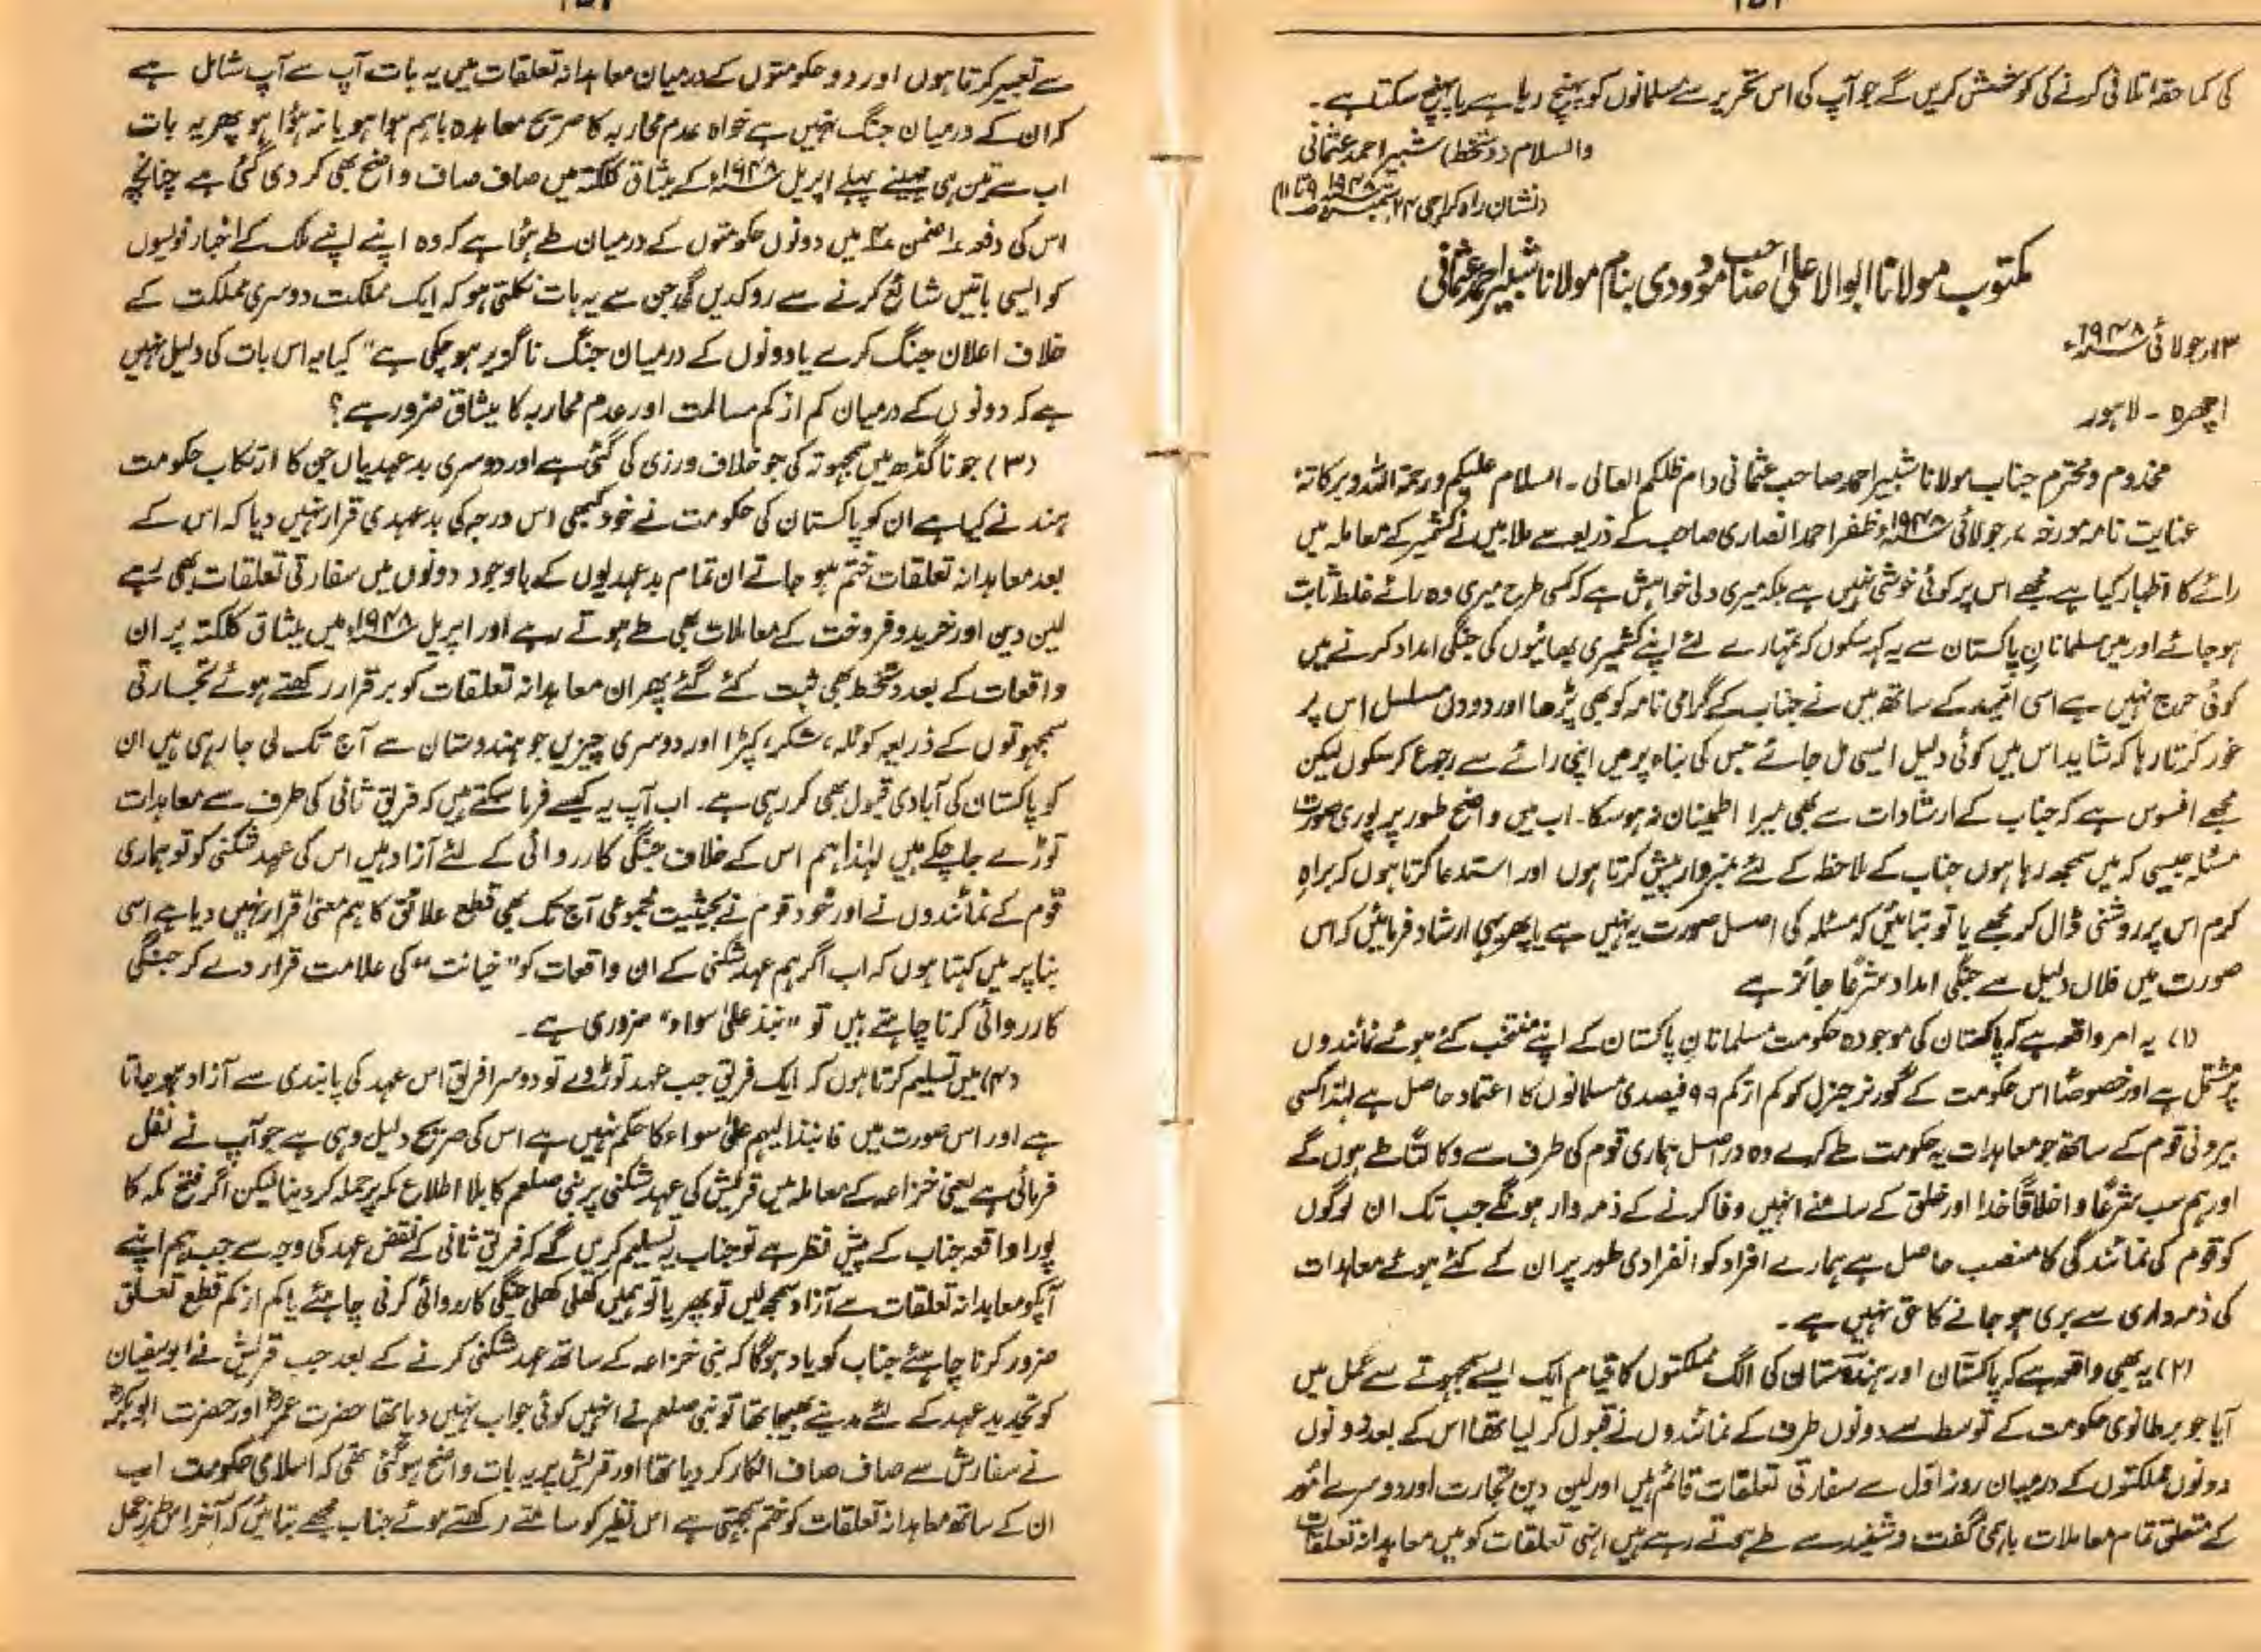 کی کما حقہ تلافی کرنے کی کوشش کریں گے جو آپ کی اس تحریر سے مسلمانوں کو پہنچ رہا ہے یا پہنچ سکتا ہے۔
والسلام (دستخط) شبیر احمد عثمانی
(نشان راہ کراچی ۲۴ ستمبر ۱۹۴۸ء ص ۹ تا ۱۱)
مکتوب مولانا ابوالاعلیٰ صاحب مودودی بنام مولانا شبیر احمد عثمانی
۱۳ جولائی ۱۹۴۸ء
اچھرہ - لاہور
مخدوم و محترم جناب مولانا شبیر احمد صاحب عثمانی دام ظلکم العالی۔ السلام علیکم ورحمۃ اللہ وبرکاتہ
عنایت نامہ مورخہ ۷ جولائی ۱۹۴۸ء ظفر احمد انصاری صاحب کے ذریعہ سے ملا میں نے کشمیر کے معاملہ میں
رائے کا اظہار کیا ہے مجھے اس پر کوئی خوشی نہیں ہے بلکہ میری دلی خواہش ہے کہ کسی طرح میری وہ رائے غلط ثابت
ہو جائے اور میں مسلمانانِ پاکستان سے یہ کہہ سکوں کہ تمہارے لئے اپنے کشمیری بھائیوں کی جنگی امداد کرنے میں
کوئی حرج نہیں ہے اسی امید کے ساتھ میں نے جناب کے گرامی نامہ کو بھی پڑھا اور دو دن مسلسل اس پر
غور کرتا رہا کہ شاید اس میں کوئی دلیل ایسی مل جائے جس کی بناء پر میں اپنی رائے سے رجوع کر سکوں لیکن
مجھے افسوس ہے کہ جناب کے ارشادات سے بھی میرا اطمینان نہ ہو سکا۔ اب میں واضح طور پر پوری صورت
مسئلہ جیسی کہ میں سمجھ رہا ہوں جناب کے ملاحظہ کے لئے نمبروار پیش کرتا ہوں اور استدعا کرتا ہوں کہ براہ
کرم اس پر روشنی ڈال کر مجھے یا تو بتائیں کہ مسئلہ کی اصل صورت یہ نہیں ہے یا پھر یہی ارشاد فرمائیں کہ اس
صورت میں فلاں دلیل سے جنگی امداد شرعًا جائز ہے
(۱) یہ امر واقعہ ہے کہ پاکستان کی موجودہ حکومت مسلمانانِ پاکستان کے اپنے منتخب کئے ہوئے نمائندوں
پر مشتمل ہے اور خصوصًا اس حکومت کے گورنر جنرل کو کم از کم ۹۹ فیصدی مسلمانوں کا اعتماد حاصل ہے لہٰذا کسی
بیرونی قوم کے ساتھ جو معاہدات یہ حکومت طے کرے وہ دراصل ہماری قوم کی طرف سے وکالتًا طے ہوں گے
اور ہم سب شرعًا و اخلاقًا خدا اور خلق کے سامنے انہیں وفا کرنے کے ذمہ دار ہونگے جب تک ان لوگوں
کو قوم کی نمائندگی کا منصب حاصل ہے ہمارے افراد کو انفرادی طور پر ان کے کئے ہوئے معاہدات
کی ذمہ داری سے بری ہو جانے کا حق نہیں ہے۔
(۲) یہ بھی واقعہ ہے کہ پاکستان اور ہندوستان کی الگ مملکتوں کا قیام ایک ایسے سمجھوتے سے عمل میں
آیا جو برطانوی حکومت کے توسط سے دونوں طرف کے نمائندوں نے قبول کر لیا تھا اس کے بعد دونوں
دونوں مملکتوں کے درمیان روز اول سے سفارتی تعلقات قائم ہیں اور لین دین تجارت اور دوسرے امور
کے متعلق تمام معاملات باہمی گفت و شنید سے طے ہوتے رہے ہیں انہی تعلقات کو میں معاہدانہ تعلقات
سے تعبیر کرتا ہوں اور دو حکومتوں کے درمیان معاہدانہ تعلقات میں یہ بات آپ سے آپ شامل ہے
کہ ان کے درمیان جنگ نہیں ہے خواہ عدم محاربہ کا صریح معاہدہ باہم ہوا ہو یا نہ ہؤا ہو پھر یہ بات
اب سے تین ہی مہینے پہلے اپریل ۱۹۴۸ء کے میثاق کلکتہ میں صاف صاف واضح بھی کر دی گئی ہے چنانچہ
اس کی دفعہ ضمن میں دونوں حکومتوں کے درمیان طے ہؤا ہے کہ وہ اپنے اپنے ملک کے اخبار نویسوں
کو ایسی باتیں شائع کرنے سے روکدیں گی جن سے یہ بات نکلتی ہو کہ ایک مملکت دوسری مملکت کے
خلاف اعلان جنگ کرے یا دونوں کے درمیان جنگ ناگزیر ہو چکی ہے" کیا یہ اس بات کی دلیل نہیں
ہے کہ دونوں کے درمیان کم از کم مسالمت اور عدم محاربہ کا میثاق ضرور ہے؟
(۳) جونا گڈھ میں سمجھوتہ کی جو خلاف ورزی کی گئی ہے اور دوسری بدعہدیاں جن کا ارتکاب حکومت
ہند نے کیا ہے ان کو پاکستان کی حکومت نے خود کبھی اس درجہ کی بدعہدی قرار نہیں دیا کہ اس کے
بعد معاہدانہ تعلقات ختم ہو جاتے ان تمام بدعہدیوں کے باوجود دونوں میں سفارتی تعلقات بھی رہے
لین دین اور خرید و فروخت کے معاملات بھی طے ہوتے رہے اور اپریل ۱۹۴۸ء میں میثاق کلکتہ پر ان
واقعات کے بعد دستخط بھی ثبت کئے گئے پھر ان معاہدانہ تعلقات کو برقرار رکھتے ہوئے تجارتی
سمجھوتوں کے ذریعہ کوئلہ، شکر، کپڑا اور دوسری چیزیں جو ہندوستان سے آج تک لی جا رہی ہیں ان
کو پاکستان کی آبادی قبول بھی کر رہی ہے۔ اب آپ یہ کیسے فرما سکتے ہیں کہ فریق ثانی کی طرف سے معاہدات
توڑے جا چکے ہیں لہٰذا ہم اس کے خلاف جنگی کارروائی کے لئے آزاد ہیں اس کی عہد شکنی کو تو ہماری
قوم کے نمائندوں نے اور خود قوم نے بحیثیت مجموعی آج تک بھی قطع علائق کا ہم معنی قرار نہیں دیا ہے اسی
بنا پر میں کہتا ہوں کہ اب اگر ہم عہد شکنی کے ان واقعات کو "خیانت" کی علامت قرار دے کر جنگی
کارروائی کرنا چاہتے ہیں تو "نبذ علیٰ سواء" ضروری ہے۔
(۴) میں تسلیم کرتا ہوں کہ ایک فریق جب عہد توڑ دے تو دوسرا فریق اس عہد کی پابندی سے آزاد ہو جاتا
ہے اور اس صورت میں فانبذ الیہم علیٰ سواء کا حکم نہیں ہے اس کی صریح دلیل وہی ہے جو آپ نے نقل
فرمائی ہے یعنی خزاعہ کے معاملہ میں قریش کی عہد شکنی پر نبی صلعم کا بلا اطلاع مکہ پر حملہ کر دینا لیکن اگر فتح مکہ کا
پورا واقعہ جناب کے پیش نظر ہے تو جناب یہ تسلیم کریں گے کہ فریق ثانی کے نقض عہد کی وجہ سے جب ہم اپنے
آپکو معاہدانہ تعلقات سے آزاد سمجھ لیں تو پھر یا تو ہمیں کھلی کھلی جنگی کارروائی کرنی چاہئے یا کم از کم قطع تعلق
ضرور کرنا چاہئے جناب کو یاد ہوگا کہ بنی خزاعہ کے ساتھ عہد شکنی کرنے کے بعد جب قریش نے ابوسفیان
کو تجدید عہد کے لئے مدینے بھیجا تھا تو نبی صلعم نے انہیں کوئی جواب نہیں دیا تھا حضرت عمرؓ اور حضرت ابوبکرؓ
نے سفارش سے صاف صاف انکار کر دیا تھا اور قریش پر یہ بات واضح ہو گئی تھی کہ اسلامی حکومت اب
ان کے ساتھ معاہدانہ تعلقات کو ختم سمجھتی ہے اس نظیر کو سامنے رکھتے ہوئے جناب مجھے بتائیں کہ آخر اس طرز عمل